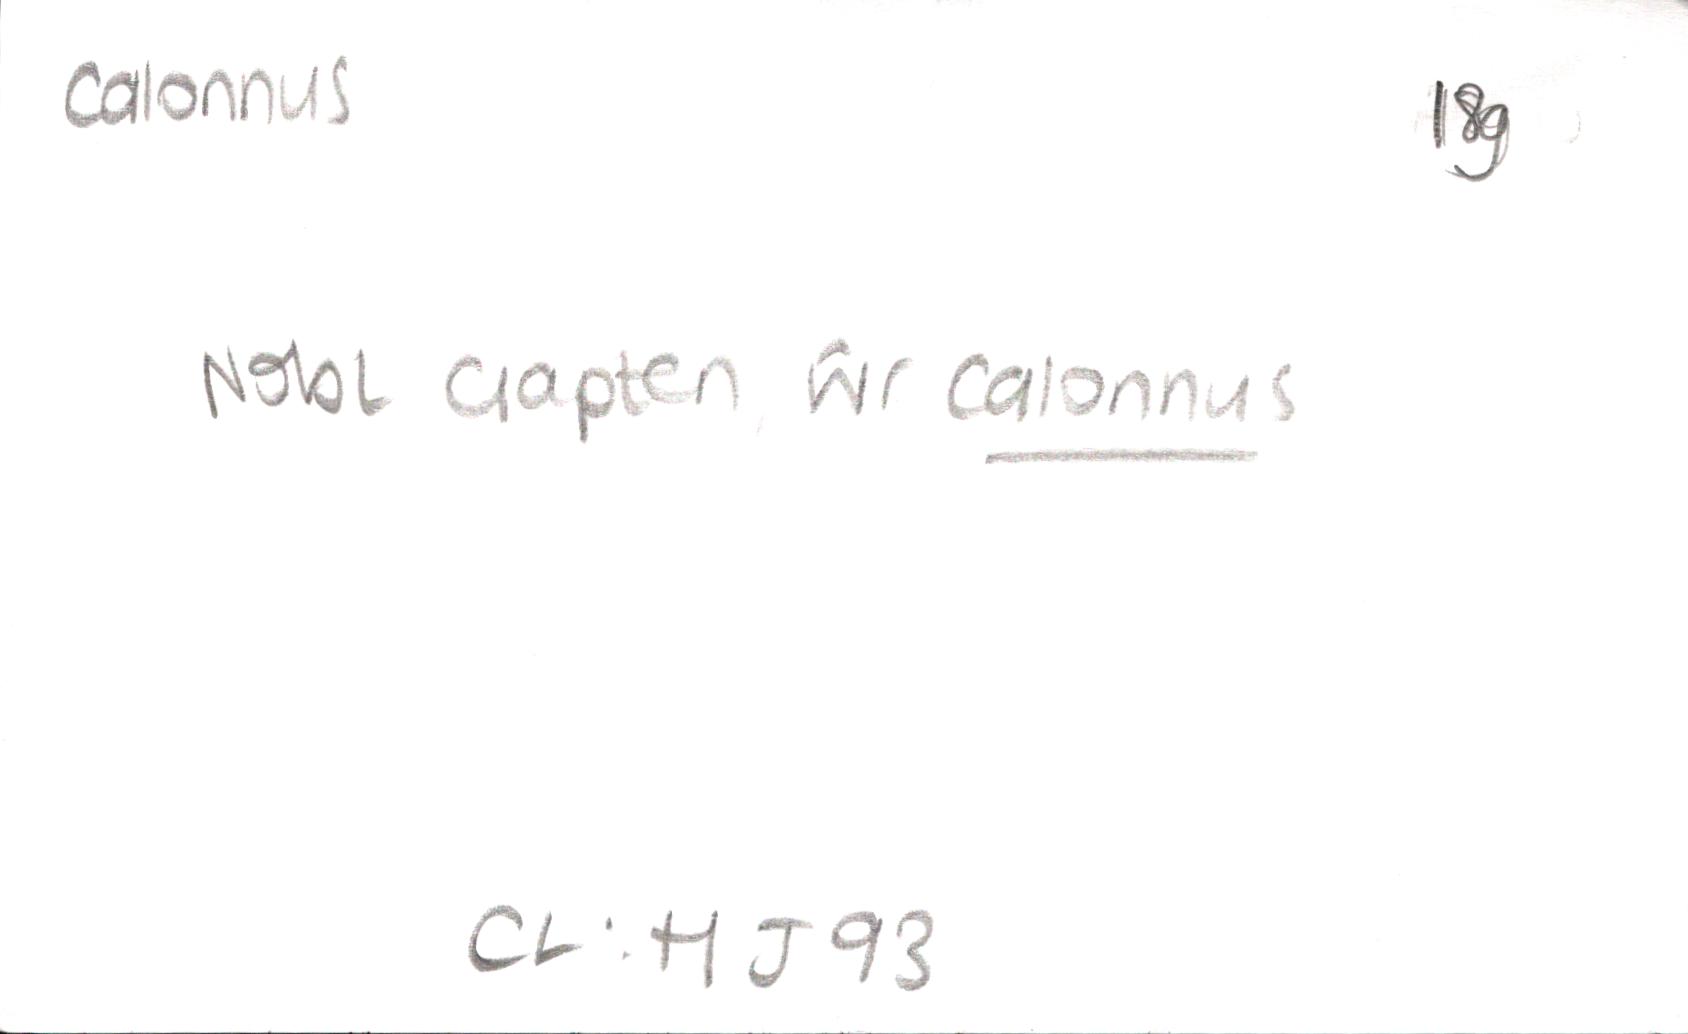 Calonnus
18g
Nobl Gapten, ŵr Calonnus
CL: HJ 93